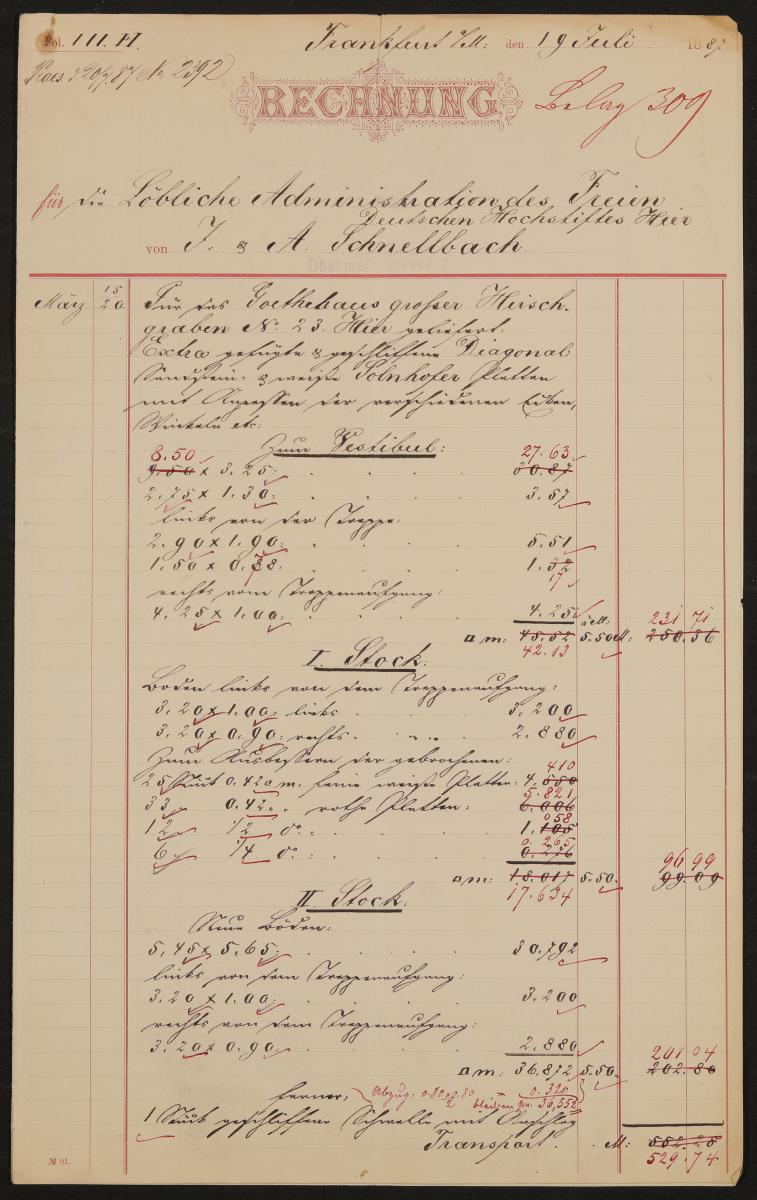 Fol. III. H. Frankfurt a/M: den 19 Juli 1887
Praes. d. 20/7. 87 No. 2392
RECHNUNG
Beleg 309
für die Löbliche Administration des Freien
Deutschen Hochstiftes Hier
von J. & A. Schnellbach
Obermainstrasse
März 15 20 Für das Goethehaus großer Hirsch-
graben No. 23. Hier geliefert:
Extra gefügte & geschliffene Diagonal
Sandstein- & weiße Solnhofer Platten
mit Anpassen der verschiedenen Ecken,
Winkeln etc:
8.50 Zum Vestibul: 27.63
9.50 x 3.25: 30.87
2.75 x 1.30: 3.57
links von der Treppe:
2.90 x 1.90: 5.51
1.50 x 0.78: 1.32
17
rechts vom Treppenaufgang:
4.25 x 1.00: 4.25 à M: 231 71
□ m: 45.52 5.50 M: 250.36
42.13
I. Stock:
Boden links von dem Treppenaufgang:
3.20 x 1.00: links 3.200
3.20 x 0.90: rechts 2.880
Zum Ausbessern der gebrochenen: 410
25 Stück 0.420 m. feine weiße Platten: 4.550
5.821
33 " 0.42 " " rothe Platten: 6.006
058
12 " 1/2 do. = 1.105
0.265
6 " 1/4 do. : 0.276
96 99
□ m: 18.017 5.50. 99.09
17.634
II. Stock:
Neue Böden:
5.45 x 5.65: 30.792
links von dem Treppenaufgang:
3.20 x 1.00: 3.200
rechts von dem Treppenaufgang:
3.20 x 0.90: 2.880 201 04
□ m: 36.872 5.50. 202.80
ferner; Abzug: 0.80 x 0.80 / 2 = 0.320
bleiben qm. 36,552
1 Stück geschliffene Schwelle mit Anschlag
Transport. M: 552.25
529.74
No 01.